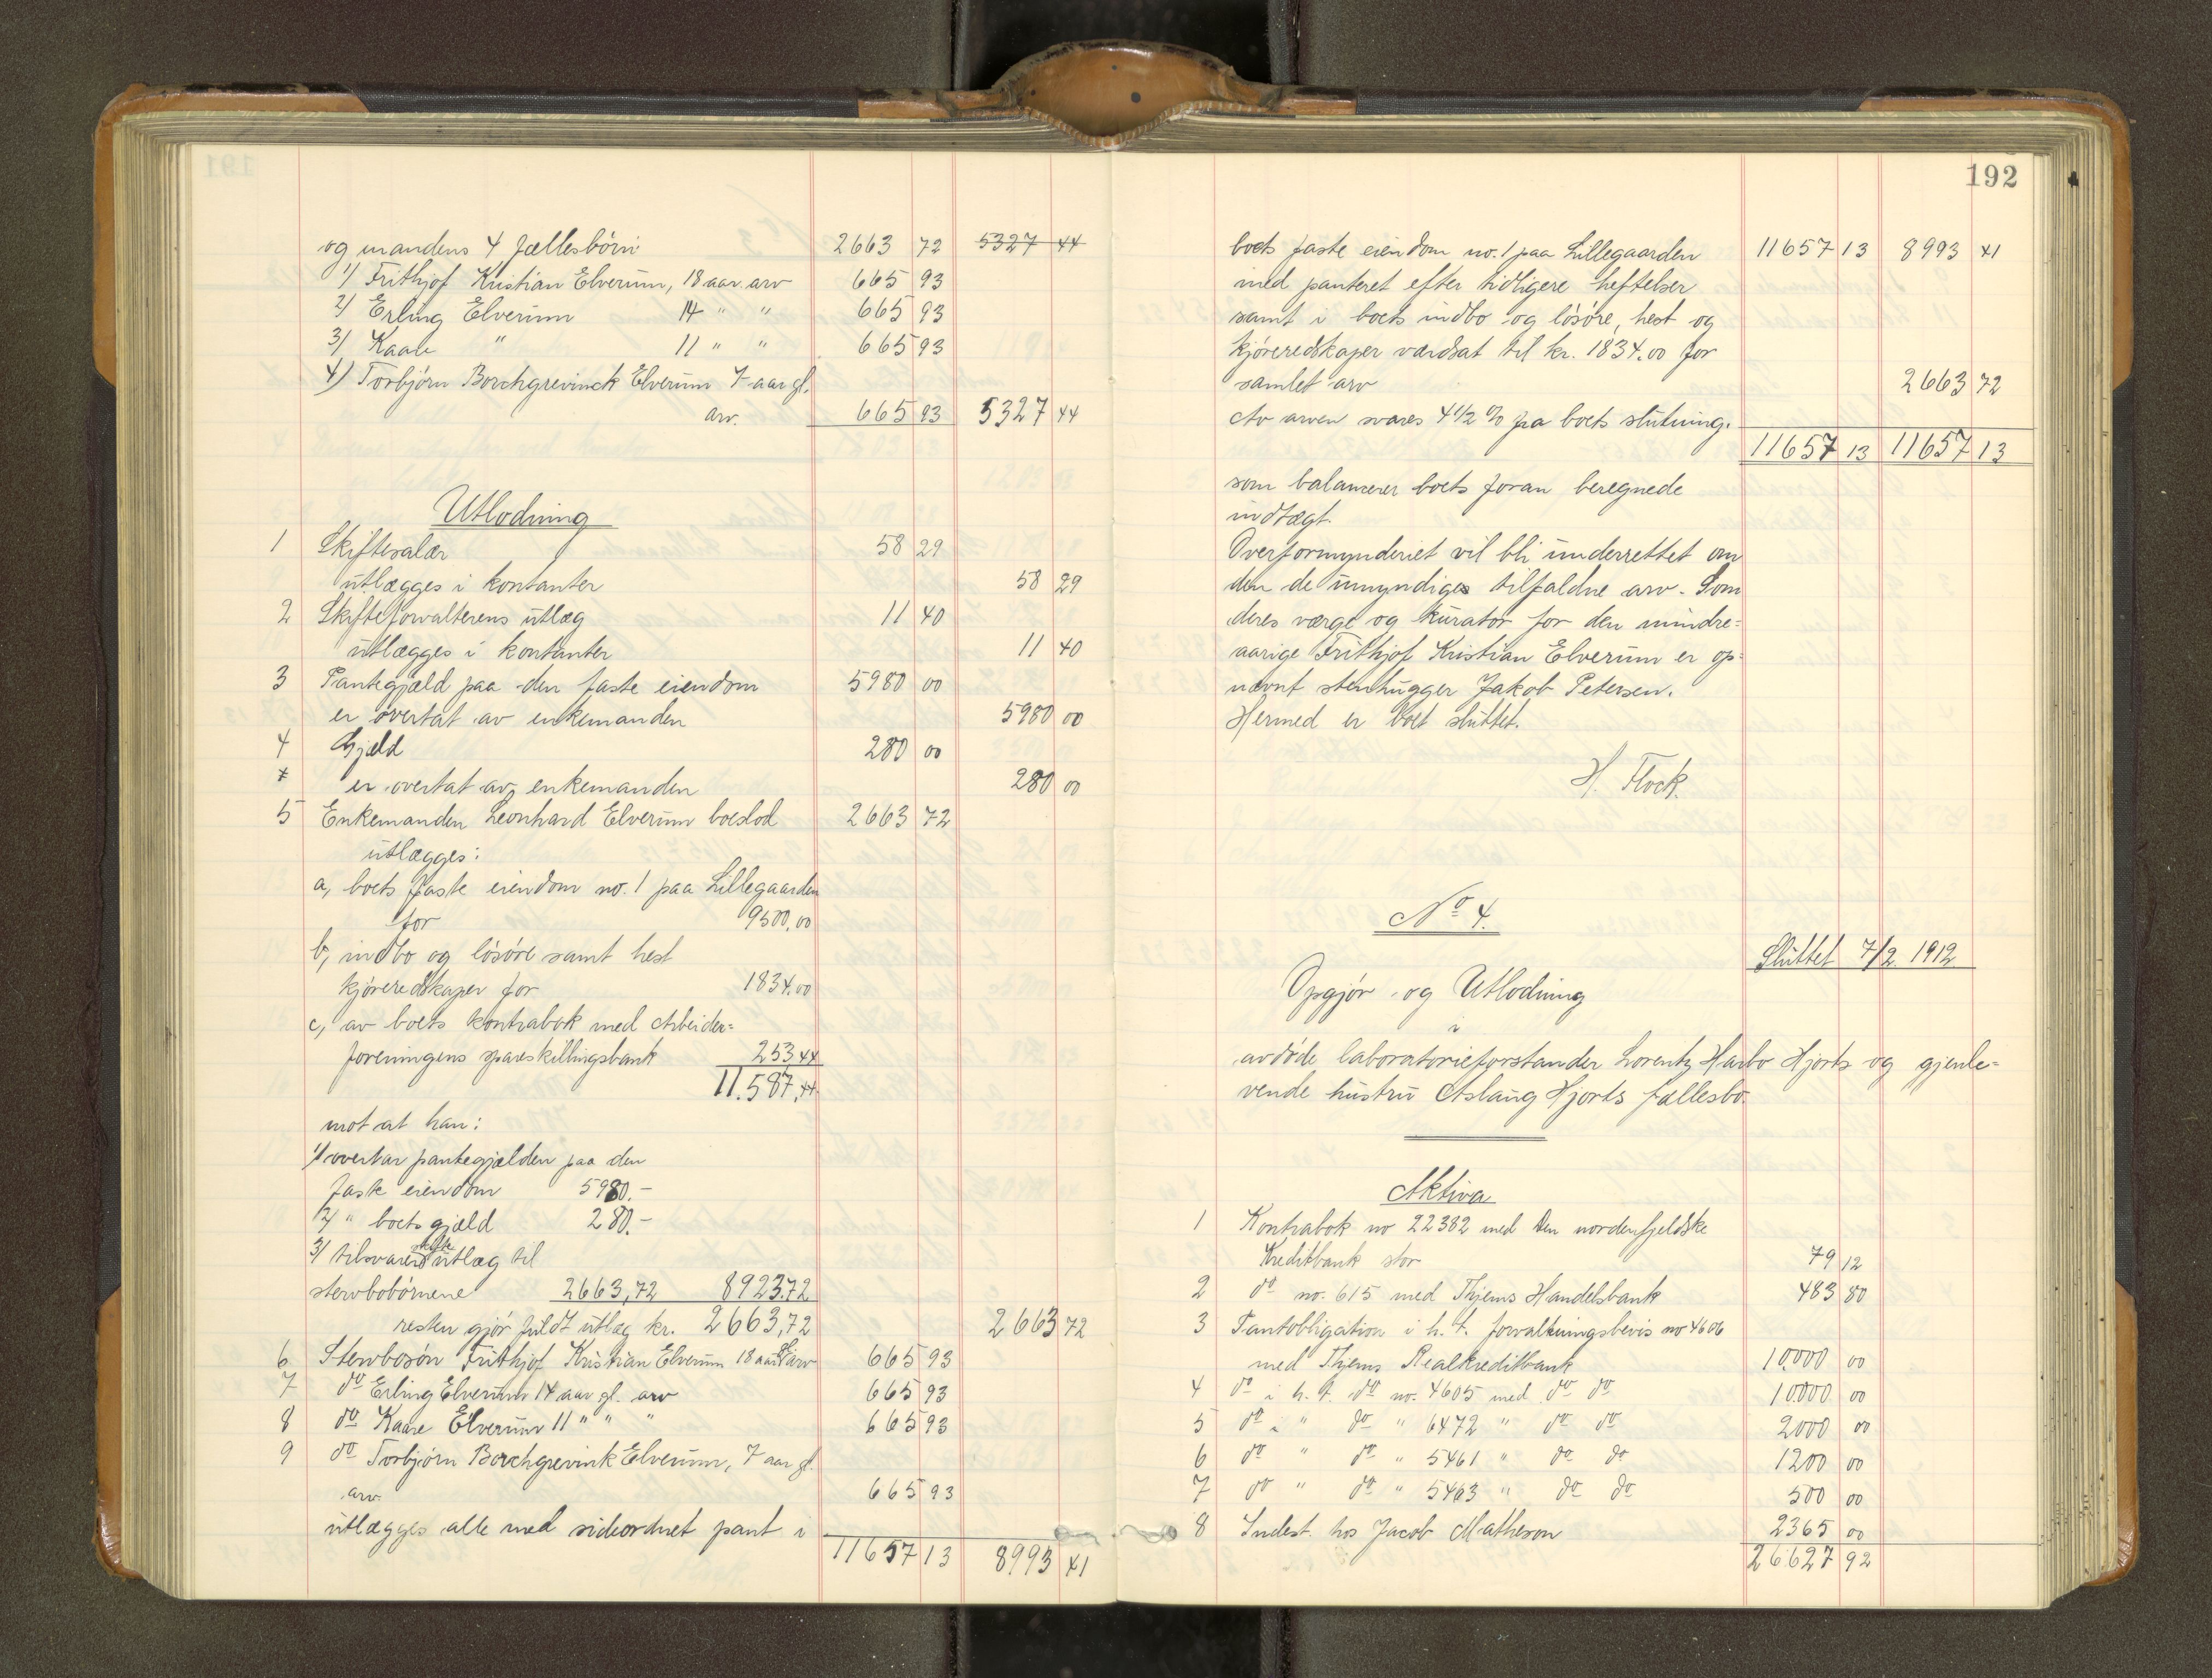 og mandens 4 fællesbörn 2663 72 5327 44
1) Frithjof Kristian Elverum, 18 aar arv 665 93
2) Erling Elverum 14 " " 665 93
3) Kaare " 11 " " 665 93
4) Torbjörn Borchgrevinck Elverum 7 aar gl.
arv. 665 93 5327 44
Utlodning
1 Skiftesalær 58 29
utlægges i kontanter 58 29
2 Skifteforvalterens utlæg 11 40
utlægges i kontanter 11 40
3 Pantegjæld paa den faste eiendom 5980 00
er overtat av enkemanden 5980 00
4 Gjæld 280 00
er overtat av enkemanden 280 00
5 Enkemanden Leonhard Elverum boeslod 2663 72
utlægges:
a, boets faste eiendom no. 1 paa Lillegaarden
for 9500,00
b, indbo og lösöre samt hest
kjöreredskaper for 1834.00
c, av boets kontrabok med Arbeider=
foreningens spareskillingsbank 253 44
11.587,44
mot at han:
1) overtar pantegjælden paa den
faste eiendom 5980.-
2) " boets gjæld 280.-
3) tilsvarer skifte utlæg til
stervbobörnene 2663,72 8923.72
resten gjör fuldt utlæg kr. 2663,72 2663 72
6 Stervbosön Frithjof Kristian Elverum 18 aar gl. arv 665 93
7 do Erling Elverum 14 aar gl. arv 665 93
8 do Kaare Elverum 11 " " " 665 93
9 do Torbjörn Borchgrevink Elverum, 7 aar gl.
arv. 665 93
utlægges alle med sideordnet pant i
11657 13 8993 41
192
boets faste eiendom no. 1 paa Lillegaarden 11657 13 8993 41
med panteret efter tidligere heftelser
samt i boets indbo og lösöre, hest og
kjöreredskaper værdsat til kr. 1834.00 for
samlet arv 2663 72
Av arven svares 4 1/2 % fra boets slutning.
11657 13 11657 13
som balanserer boets foran beregnede
indtægt.
Overformynderiet vil bli underrettet om
den de umyndiges tilfaldne arv. Som
deres værge og kurator for den mindre=
aarige Frithjof Kristian Elverum er op=
nævnt stenhugger Jakob Petersen.
Hermed er boet sluttet.
H. Flock.
No 4.
Sluttet 7/2 1912
Opgjör og Utlodning
i
avdöde laboratorieforstander Lorentz Harbo Hjorts og gjenle=
vende hustru Aslaug Hjorts fællesbo.
Aktiva
1 Kontrabok no 22382 med Den nordenfjeldske
Kreditbank stor 79 12
2 do no. 615 med Thjems Handelsbank 483 80
3 Pantobligation i h. t. forvaltningsbevis no 4606
med Thjems Realkreditbank 10.000 00
4 do i h. t. do no. 4605 med do do 10.000 00
5 do " do " 6472 " do do 2000 00
6 do " do " 5461 " do do 1200 00
7 do " do " 5463 " do do 500 00
8 Indest. hos Jacob Matheson 2365 00
26627 92